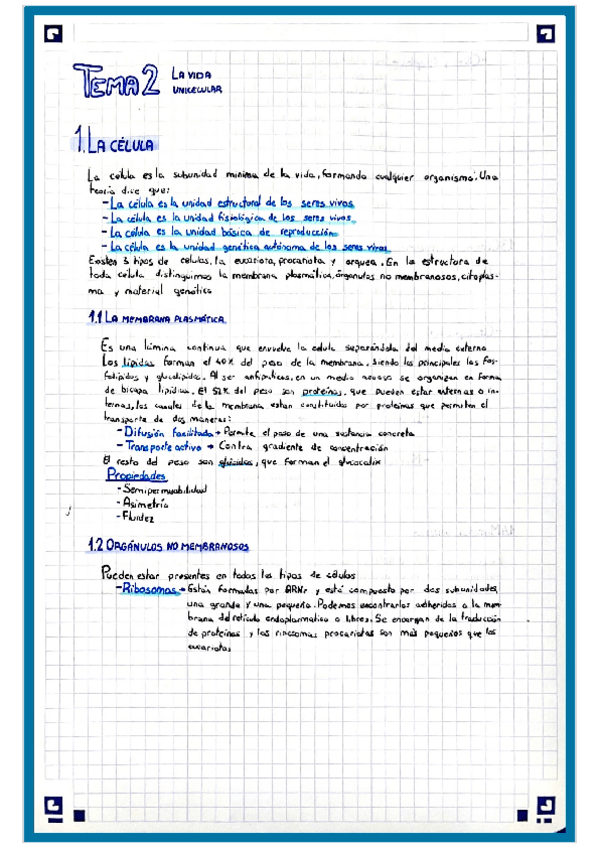 TEMA 2 LA VIDA
UNICELULAR
1. LA CÉLULA
La célula es la subunidad mínima de la vida, formando cualquier organismo. Una
teoría dice que:
- La célula es la unidad estructural de los seres vivos
- La célula es la unidad fisiológica de los seres vivos
- La célula es la unidad básica de reproducción
- La célula es la unidad genética autónoma de los seres vivos
Existen 3 tipos de células, la eucariota, procariota y arquea. En la estructura de
toda célula distinguimos la membrana plasmática, órganulos no membranosos, citoplas-
ma y material genético
1.1 LA MEMBRANA PLASMÁTICA
Es una lámina continua que envuelve la célula separándola del medio externo
Los lípidos forman el 40% del peso de la membrana, siendo los principales los fos-
folípidos y glucolípidos. Al ser anfipáticas, en un medio acuoso se organizan en forma
de bicapa lipídica. El 52% del peso son proteínas, que pueden estar externas o in-
ternas, los canales de la membrana estan constituidos por proteínas que permiten el
transporte de dos maneras:
- Difusión facilitada → Permite el paso de una sustancia concreta
- Transporte activo → Contra gradiente de concentración
El resto del peso son glúcidos, que forman el glucocalix
Propiedades
- Semipermeabilidad
- Asimetría
- Fluidez
1.2 ORGÁNULOS NO MEMBRANOSOS
Pueden estar presentes en todos los tipos de células
- Ribosomas → Están formados por ARNr y está compuesto por dos subunidades,
una grande y una pequeña. Podemos encontrarlos adheridos a la mem-
brana del retículo endoplasmático o libres. Se encargan de la traducción
de proteínas y los ribosomas procariotas son más pequeños que los
eucariotas